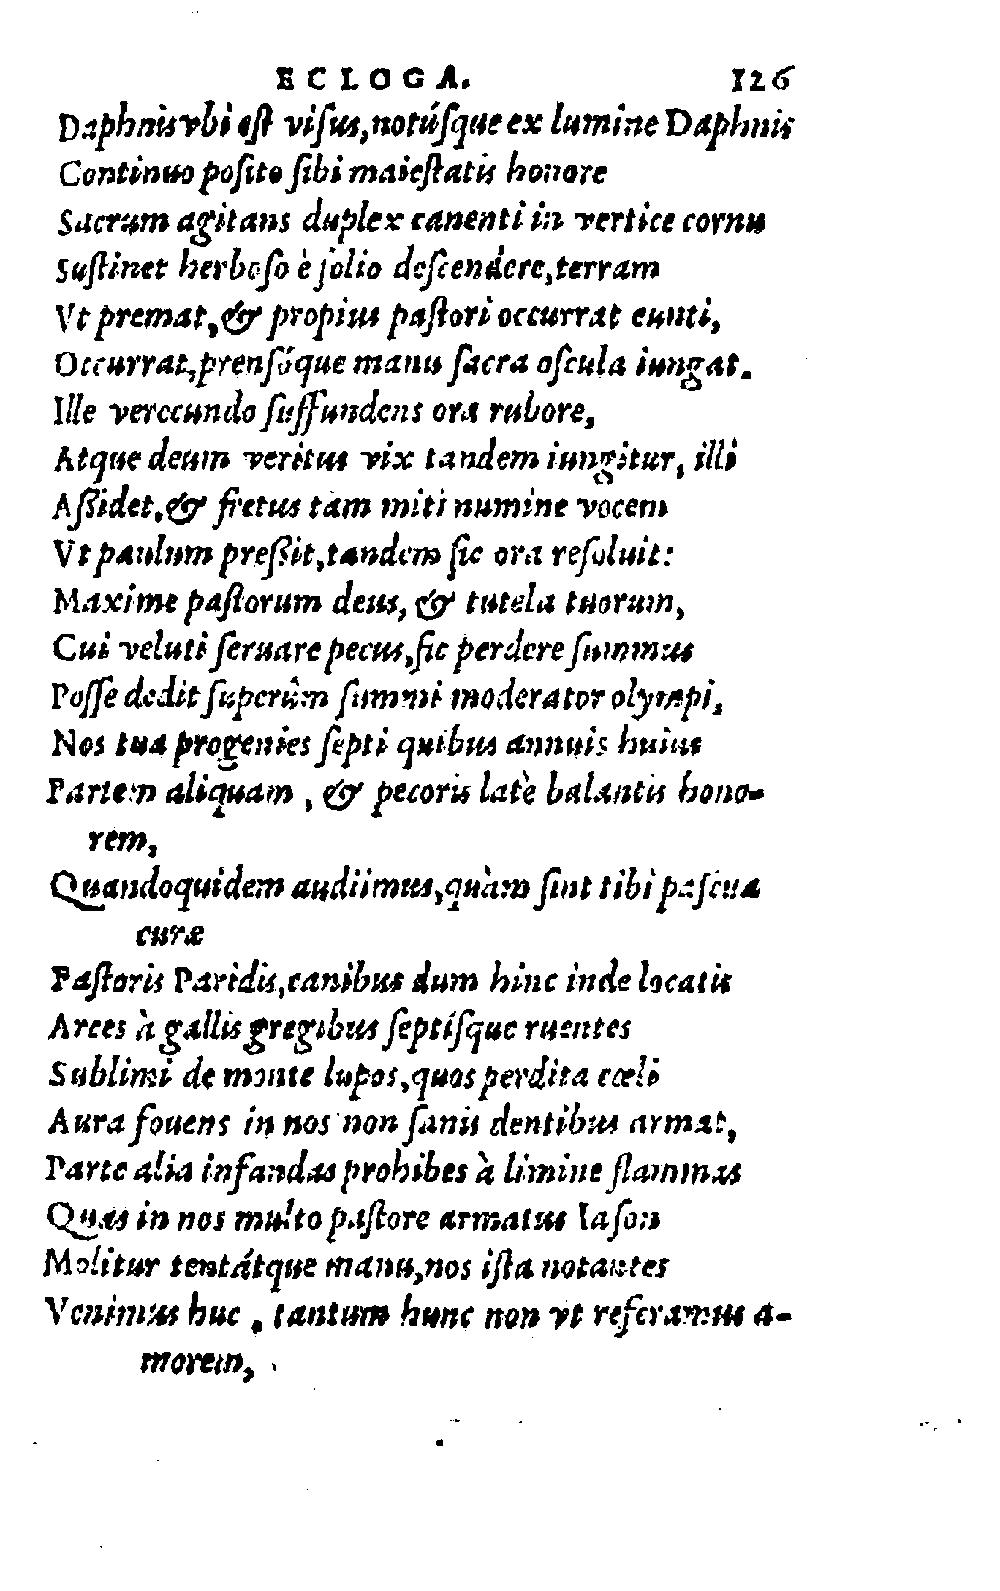 ECLOGA. 126
Daphnis vbi est visus, notúsque ex lumine Daphnis
Continuo posito sibi maiestatis honore
Sacrum agitans duplex canenti in vertice cornu
Sustinet herboso è solio descendere, terram
Vt premat, & propius pastori occurrat eunti,
Occurrat, prensóque manu sacra oscula iungat.
Ille verecundo suffundens ora rubore,
Atque deum veritus vix tandem iungitur, illi
Assidet, & fretus tam miti numine vocem
Vt paulum pressit, tandem sic ora resoluit:
Maxime pastorum deus, & tutela tuorum,
Cui veluti seruare pecus, sic perdere summus
Posse dedit superûm summi moderator olympi,
Nos tua progenies septi quibus annuis huius
Partem aliquam, & pecoris latè balantis hono-
rem,
Quandoquidem audiimus, quàm sint tibi pascua
curæ
Pastoris Paridis, canibus dum hinc inde locatis
Arces à gallis gregibus septísque ruentes
Sublimi de monte lupos, quos perdita cœli
Aura fouens in nos non sanis dentibus armat,
Parte alia infandas prohibes à limine flammas
Quas in nos multo pastore armatus Iason
Molitur tentátque manu, nos ista notantes
Venimus huc, tantum hunc non vt referamus a-
morem,